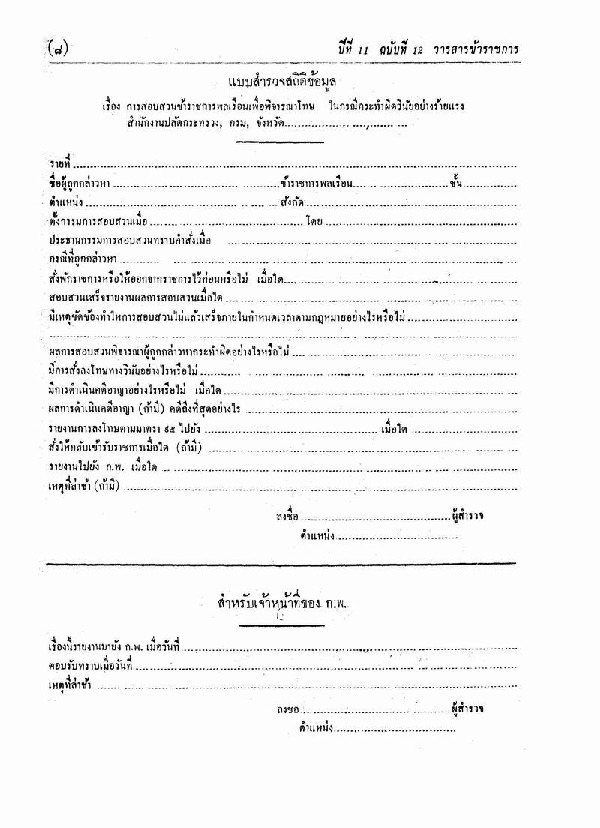 (๘) ปีที่ 11 ฉบับที่ 12 วารสารข้าราชการ
แบบสำรวจสถิติข้อมูล
เรื่อง การสอบสวนข้าราชการพลเรือนเพื่อพิจารณาโทษ ในกรณีกระทำผิดวินัยอย่างร้ายแรง
สำนักงานปลัดกระทรวง, กรม, จังหวัด....................
รายที่....................
ชื่อผู้ถูกกล่าวหา....................ข้าราชการพลเรือน....................ชั้น..........
ตำแหน่ง....................สังกัด....................
ตั้งกรรมการสอบสวนเมื่อ....................โดย....................
ประธานกรรมการสอบสวนทราบคำสั่งเมื่อ....................
กรณีที่ถูกกล่าวหา....................
สั่งพักราชการหรือให้ออกจากราชการไว้ก่อนหรือไม่ เมื่อใด....................
สอบสวนเสร็จรายงานผลการสอบสวนเมื่อใด....................
มีเหตุขัดข้องทำให้การสอบสวนไม่แล้วเสร็จภายในกำหนดเวลาตามกฎหมายอย่างไรหรือไม่....................
....................
ผลการสอบสวนพิจารณาผู้ถูกกล่าวหากระทำผิดอย่างไรหรือไม่....................
มีการสั่งลงโทษทางวินัยอย่างไรหรือไม่....................
มีการดำเนินคดีอาญาอย่างไรหรือไม่ เมื่อใด....................
ผลการดำเนินคดีอาญา (ถ้ามี) คดีถึงที่สุดอย่างไร....................
รายงานการลงโทษตามมาตรา ๙๕ ไปยัง....................เมื่อใด....................
สั่งให้กลับเข้ารับราชการเมื่อใด (ถ้ามี)....................
รายงานไปยัง ก.พ. เมื่อใด....................
เหตุที่ล่าช้า (ถ้ามี)....................
ลงชื่อ....................ผู้สำรวจ
ตำแหน่ง....................
สำหรับเจ้าหน้าที่ของ ก.พ.
เรื่องนี้รายงานมายัง ก.พ. เมื่อวันที่....................
ตอบรับทราบเมื่อวันที่....................
เหตุที่ล่าช้า....................
ลงชื่อ....................ผู้สำรวจ
ตำแหน่ง....................